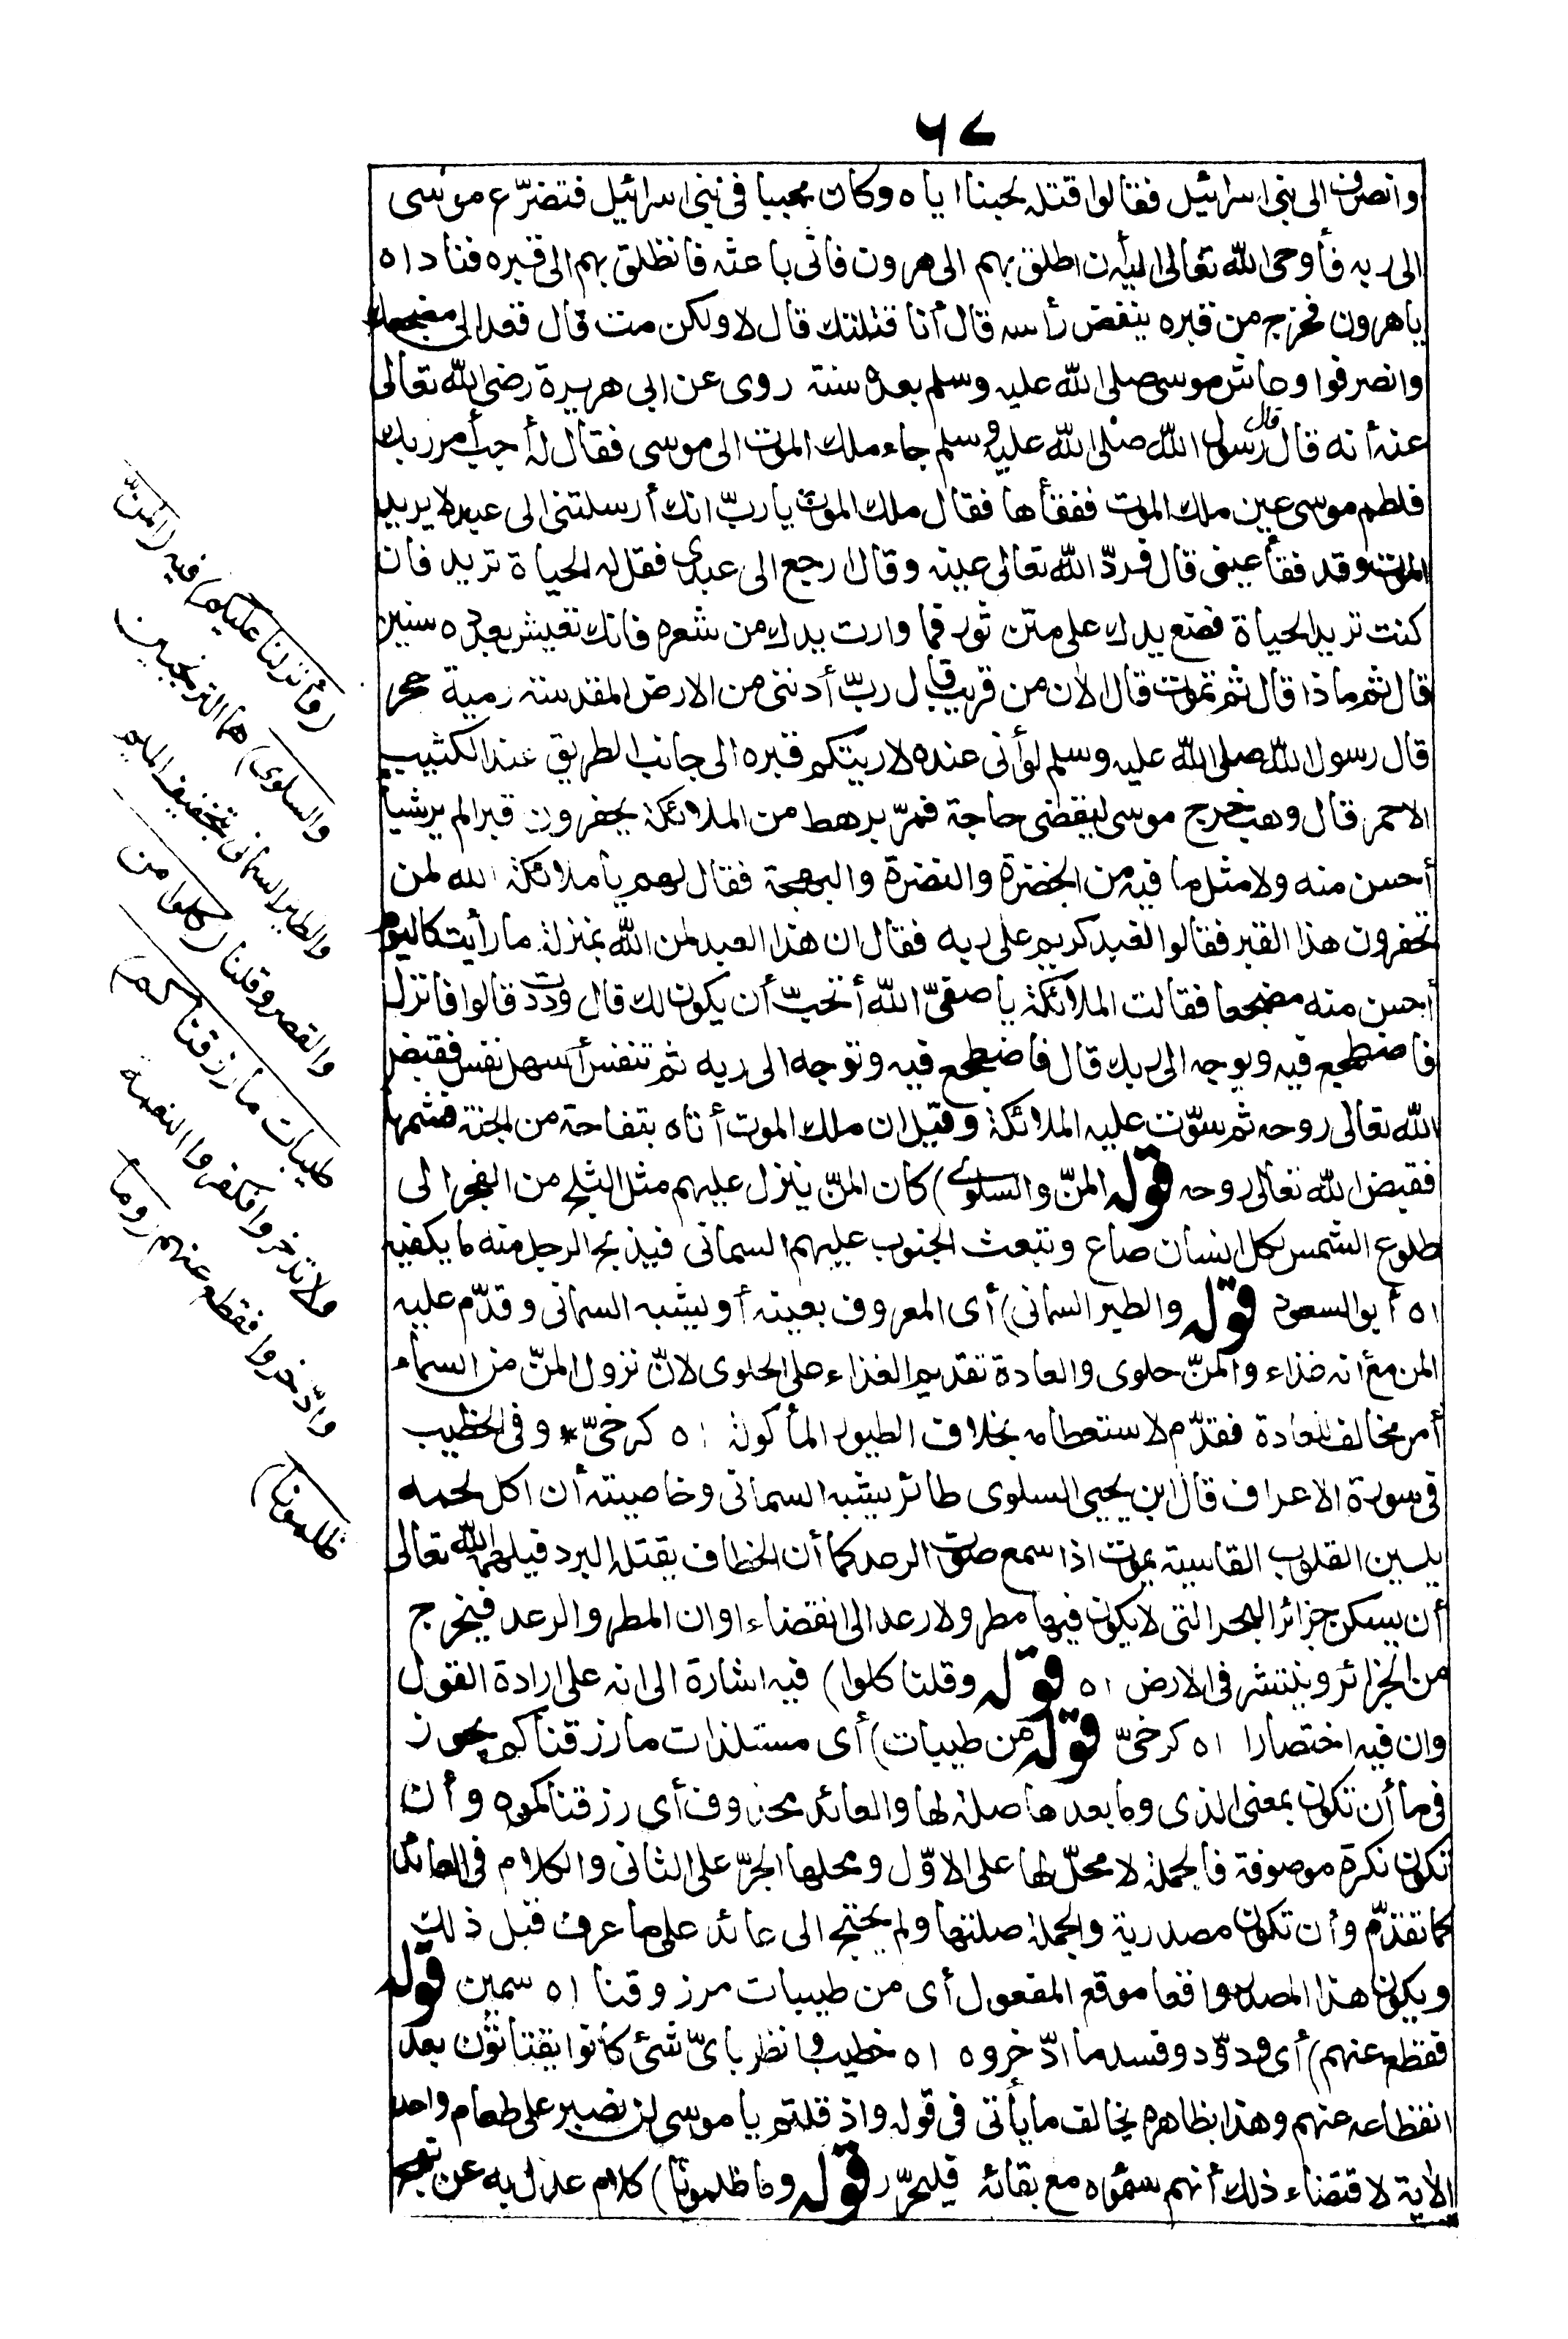 ٦٧
وانصرف الى بنى اسرائيل فقالوا قتله لحبنا اياه وكان محببا فى بنى اسرائيل فتضرّع موسى
الى ربه فأوحى الله تعالى اليه أن انطلق بهم الى هرون فانى باعثه فانطلق بهم الى قبره فناداه
ياهرون فخرج من قبره ينفض رأسه قال أنا قتلتك قال لا ولكن مت قال فعد الى مضجعك
وانصرفوا وعاش موسى صلى الله عليه وسلم بعده سنة روى عن ابى هريرة رضى الله تعالى
عنه أنه قال قال رسول الله صلى الله عليه وسلم جاء ملك الموت الى موسى فقال له أجب أمر ربك
فلطم موسى عين ملك الموت ففقأها فقال ملك الموت يا ربّ انك أرسلتنى الى عبد لا يريد
الموت وقد فقأ عينى قال فردّ الله تعالى عينه وقال ارجع الى عبدى فقل له الحياة تريد فان
كنت تريد الحياة فضع يدك على متن ثور فما وارت يدك من شعره فانك تعيش بعدده سنين
قال ثم ماذا قال ثم تموت قال الان من قريب قال ربّ أدننى من الارض المقدسة رمية حجر
قال رسول الله صلى الله عليه وسلم لو أنى عنده لاريتكم قبره الى جانب الطريق عند الكثيب
الاحمر قال وهب خرج موسى ليقضى حاجة فمرّ برهط من الملائكة يحفرون قبرا لم ير شيأ
أحسن منه ولا مثل ما فيه من الخضرة والنضرة والبهجة فقال لهم يا ملائكة الله لمن
تحفرون هذا القبر فقالوا لعبد كريم على ربه فقال ان هذا العبد لمن الله بمنزلة ما رأيت كاليوم
أحسن منه مضجعا فقالت الملائكة يا صفىّ الله أتحبّ أن يكون لك قال وددت قالوا فانزل
فاضطجع فيه وتوجه الى ربك قال فاضطجع فيه وتوجه الى ربه ثم تنفس أسهل نفس فقبض
الله تعالى روحه ثم سوّت عليه الملائكة وقيل ان ملك الموت أتاه بتفاحة من الجنة فشمها
فقبض الله تعالى روحه قوله المنّ والسلوى) كان المنّ ينزل عليهم مثل الثلج من الفجر الى
طلوع الشمس لكل انسان صاع وتبعث الجنوب عليهم السمانى فيذبح الرجل منه ما يكفيه
اه أبو السعود قوله والطير السمانى) أى المعروف بعينه أو يشبه السمانى وقدّم عليه
المن مع أنه غذاء والمنّ حلوى والعادة تقديم الغذاء على الحلوى لانّ نزول المنّ من السماء
أمر مخالف للعادة فقدّم لاستعظامه بخلاف الطيور المأكولة اه كرخىّ * وفى الخطيب
فى سورة الاعراف قال ابن يحيى السلوى طائر يشبه السمانى وخاصيته أن اكل لحمه
يلين القلوب القاسية يموت اذا سمع صوت الرعد كما أن الخطاف يقتله البرد فيلهمه الله تعالى
أن يسكن جزائر البحر التى لا يكون فيها مطر ولا رعد الى انقضاء اوان المطر والرعد فيخرج
من الجزائر وينتشر فى الارض اه قوله وقلنا كلوا) فيه اشارة الى انه على ارادة القول
وان فيه اختصارا اه كرخىّ قوله من طيبات) أى مستلذات ما رزقناكم يجوز
فى ما أن تكون بمعنى الذى وما بعدها صلة لها والعائد محذوف أى رزقناكموه وأن
تكون نكرة موصوفة فالجملة لا محلّ لها على الاوّل ومحلها الجرّ على الثانى والكلام فى العائد
كما تقدّم وأن تكون مصدرية والجملة صلتها ولم يحتج الى عائد على ما عرف قبل ذلك
ويكون هذا المصدر واقعا موقع المفعول أى من طيبات مرزوقنا اه سمين قوله
فقطع عنهم) أى ودوّد وفسد ما ادّخروه اه خطيب وانظر باىّ شئ كانوا يقتاتون بعد
انقطاعه عنهم وهذا بظاهره يخالف ما يأتى فى قوله واذ قلتم يا موسى لن نصبر على طعام واحد
الآية لاقتضاء ذلك أنهم سئموه مع بقائه فليحرّر قوله وما ظلمونا) كلام عدل به عن نهج
(وأنزلنا عليكم) فيه (المنّ
والسلوى) هما الترنجبين
والطير السمانى بتخفيف الميم
والقصر وقلنا (كلوا من
طيبات ما رزقناكم)
ولا تدخروا فكفروا النعمة
وادّخروا فقطع عنهم (وما
ظلمونا)